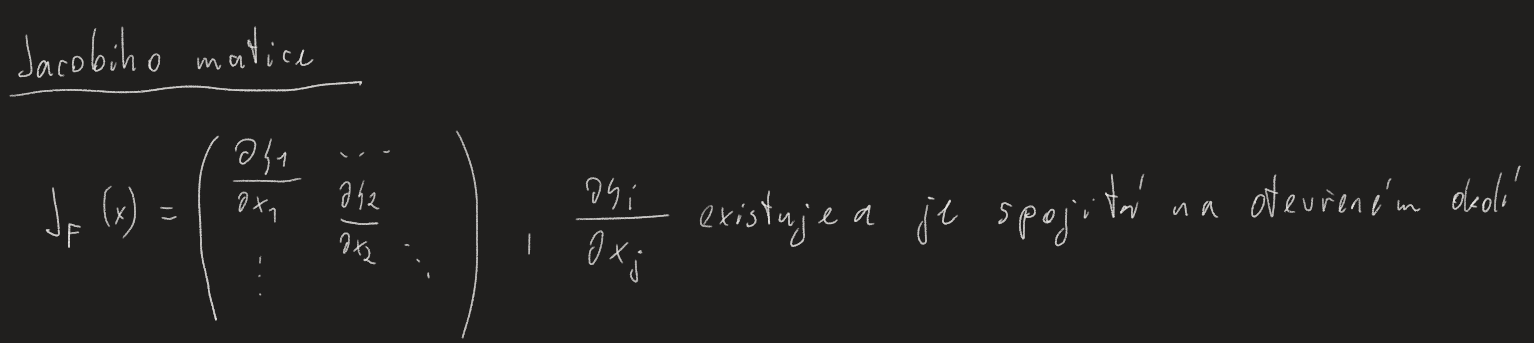 Jacobiho matice
J_F (x) = ( ∂f₁/∂x₁ ... ∂f₂/∂x₂ ⋮ ⋱ ) , ∂f_i/∂x_j existuje a je spojitá na otevřeném okolí